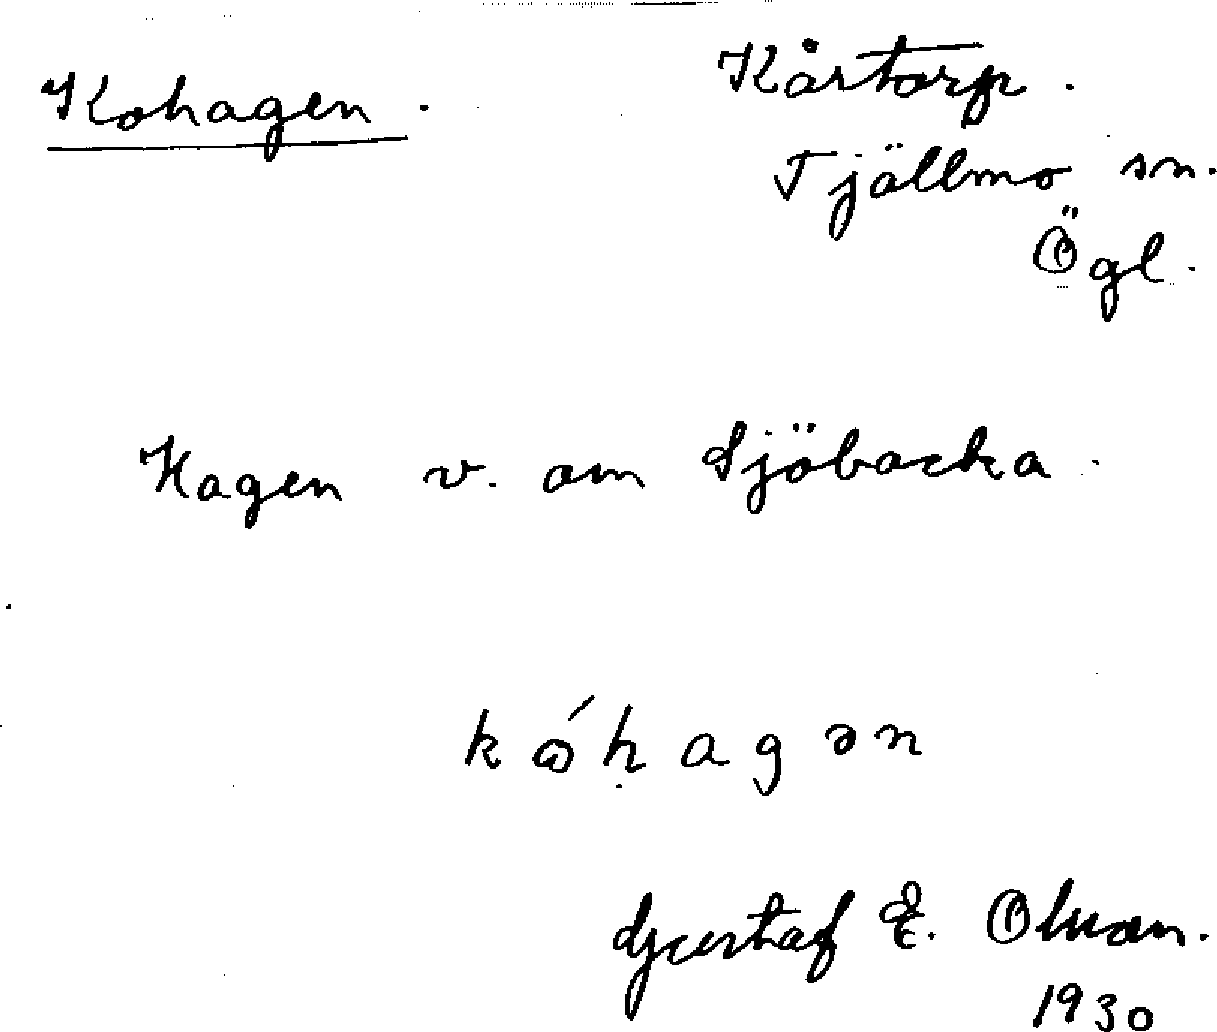 Kohagen.
Kårtorp.
Tjällmo sn.
Ögl.
Hagen v. om Sjöbacka.
kóhagən
Gustaf E. Olsson.
1930